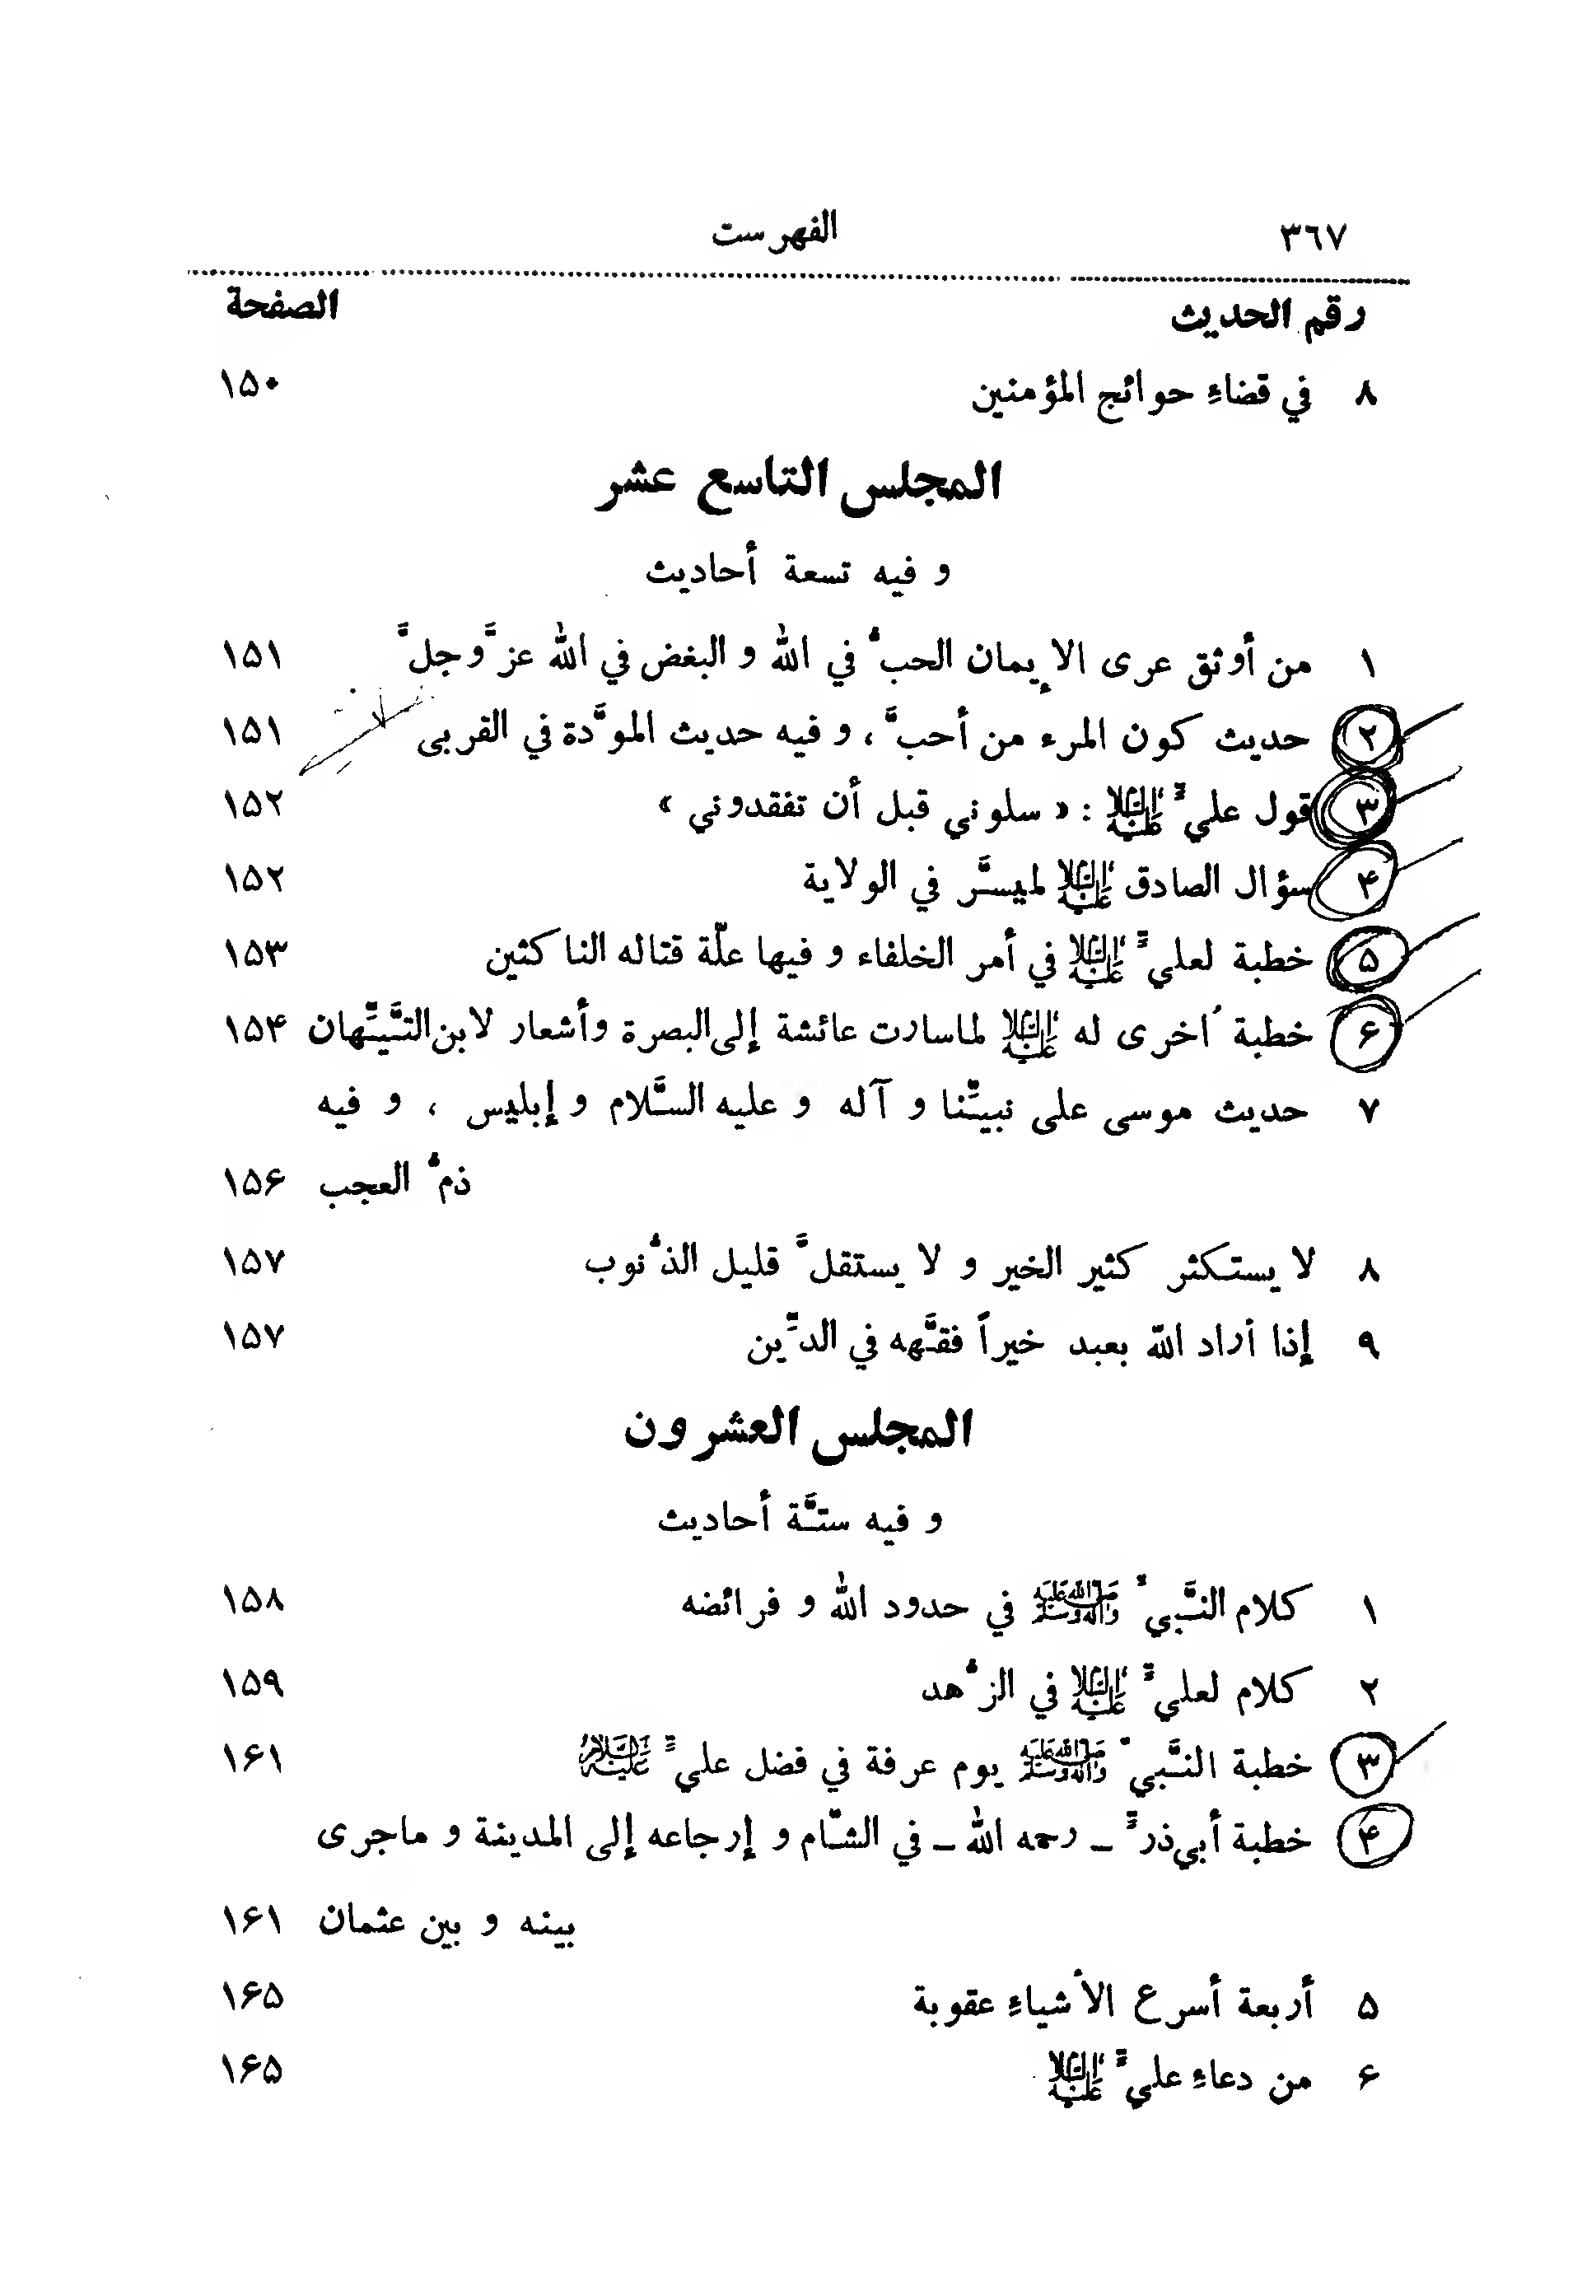 ٣٦٧ الفهرست
رقم الحديث الصفحة
٨ في قضاءِ حوائج المؤمنين ١۵٠
المجلس التاسع عشر
و فيه تسعة أحاديث
١ من أوثق عرى الإيمان الحبُّ في الله و البغض في الله عزَّوجلَّ ١۵١
٢ حديث كون المرء من أحبَّ، و فيه حديث الموَّدة في القربى ١۵١
٣ قول عليٍّ عليه السلام : « سلوني قبل أن تفقدوني » ١۵٢
۴ سؤال الصادق عليه السلام لميسَّر في الولاية ١۵٢
۵ خطبة لعليٍّ عليه السلام في أمر الخلفاء و فيها علّة قتاله الناكثين ١۵٣
۶ خطبة اُخرى له عليه السلام لماسارت عائشة إلى البصرة وأشعار لابن التَّيِّهان ١۵۴
٧ حديث موسى على نبيِّنا و آله و عليه السَّلام و إبليس ، و فيه
ذمُّ العجب ١۵۶
٨ لا يستكثر كثير الخير و لا يستقلَّ قليل الذُّنوب ١۵٧
٩ إذا أراد الله بعبد خيراً فقَّهه في الدِّين ١۵٧
المجلس العشرون
و فيه ستَّة أحاديث
١ كلام النَّبيِّ صلى الله عليه وآله وسلم في حدود الله و فرائضه ١۵٨
٢ كلام لعليٍّ عليه السلام في الزُّهد ١۵٩
٣ خطبة النَّبيِّ صلى الله عليه وآله وسلم يوم عرفة في فضل عليٍّ عليه السلام ١۶١
۴ خطبة أبي‌ذرٍّ ـ رحمه الله ـ في الشّام و إرجاعه إلى المدينة و ماجرى
بينه و بين عثمان ١۶١
۵ أربعة أسرع الأشياءِ عقوبة ١۶۵
۶ من دعاءِ عليٍّ عليه السلام ١۶۵